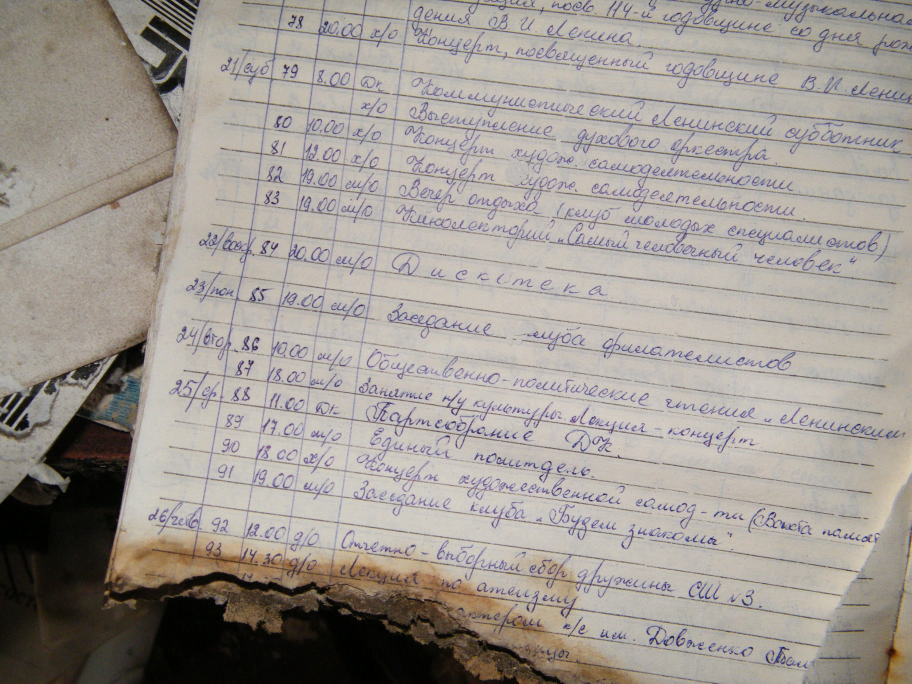 посв. 114-й годовщине со дня рож
78 20.00 х/о дения В. И. Ленина.
Концерт, посвященный годовщине В. И. Ленин
21/суб 79 8.00 Дк Коммунистический Ленинский субботник
х/о Выступление духового оркестра.
80 10.00 х/о Концерт худож. самодеятельности
81 12.00 х/о Концерт худож. самодеятельности.
82 19.00 м/о Вечер отдыха (клуб молодых специалистов)
83 19.00 м/о Кинолекторий „Самый человечный человек"
22/воскр. 84 20.00 м/о Дискотека
23/пон 85 19.00 м/о Заседание клуба филателистов
24/втор. 86 10.00 м/о Общественно-политические чтения „Ленинским
87 18.00 м/о Занятие н/у культуры. Лекция-концерт
25/ср. 88 11.00 Дк Партсобрание ДК.
89 17.00 м/о Единый политдень.
90 18.00 х/о Концерт художественной самод-ти (Вахта памяти
91 19.00 м/о Заседание клуба „Будем знакомы"
26/четв 92 12.00 д/о Отчетно-выборный сбор дружины СШ №3.
93 14.30 д/о Лекция по атеизму
к/с им. Довженко